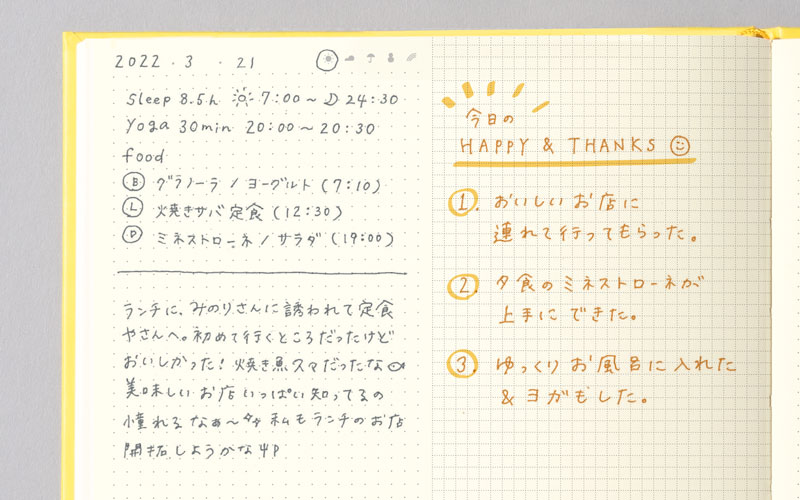 2022 . 3 . 21
sleep 8.5h 7:00〜 24:30
Yoga 30min 20:00〜20:30
food
B グラノーラ / ヨーグルト (7:10)
L 焼きサバ定食 (12:30)
D ミネストローネ / サラダ (19:00)
ランチに、みのりさんに誘われて定食
やさんへ。初めて行くところだったけど
おいしかった! 焼き魚スマだったな
美味しいお店いっぱい知ってるの
憧れるなぁ〜 私もランチのお店
開拓しようかな
今日の
HAPPY & THANKS
1. おいしいお店に
連れて行ってもらった。
2. 夕食のミネストローネが
上手にできた。
3. ゆっくりお風呂に入れた
& ヨガもした。